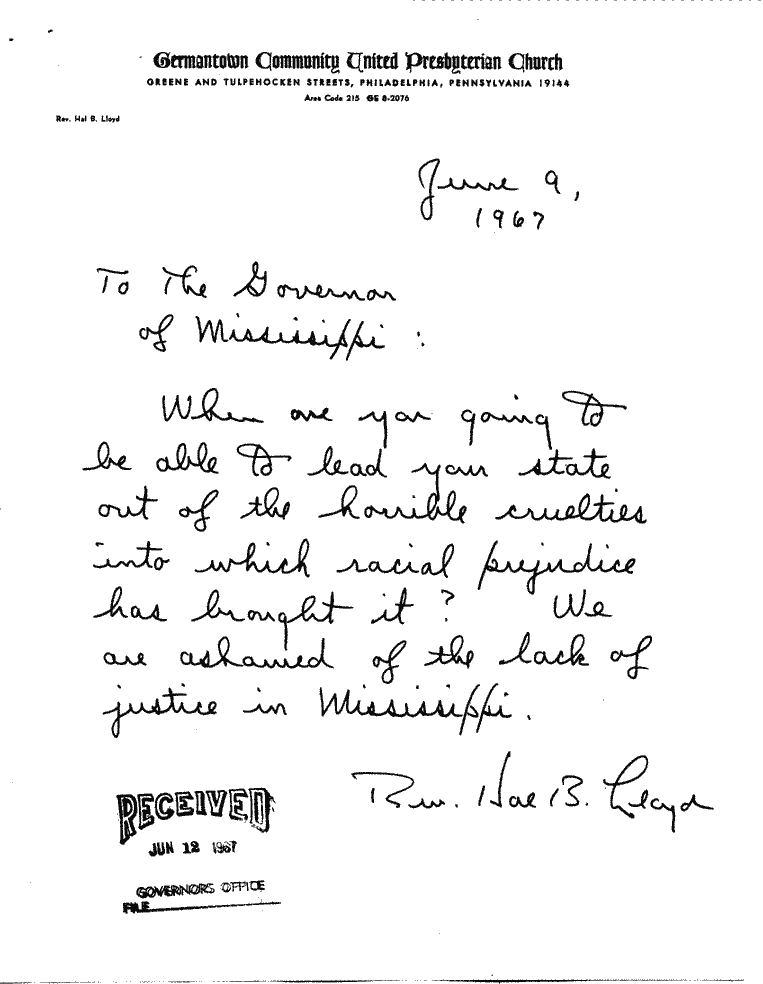 Germantown Community United Presbyterian Church
GREENE AND TULPEHOCKEN STREETS, PHILADELPHIA, PENNSYLVANIA 19144
Area Code 215 GE 8-2076
Rev. Hal B. Lloyd
June 9,
1967
To The Governor
of Mississippi :
When are you going to
be able to lead your state
out of the horrible cruelties
into which racial prejudice
has brought it? We
are ashamed of the lack of
justice in Mississippi.
Rev. Hal B. Lloyd
RECEIVED
JUN 12 1967
GOVERNORS OFFICE
FILE